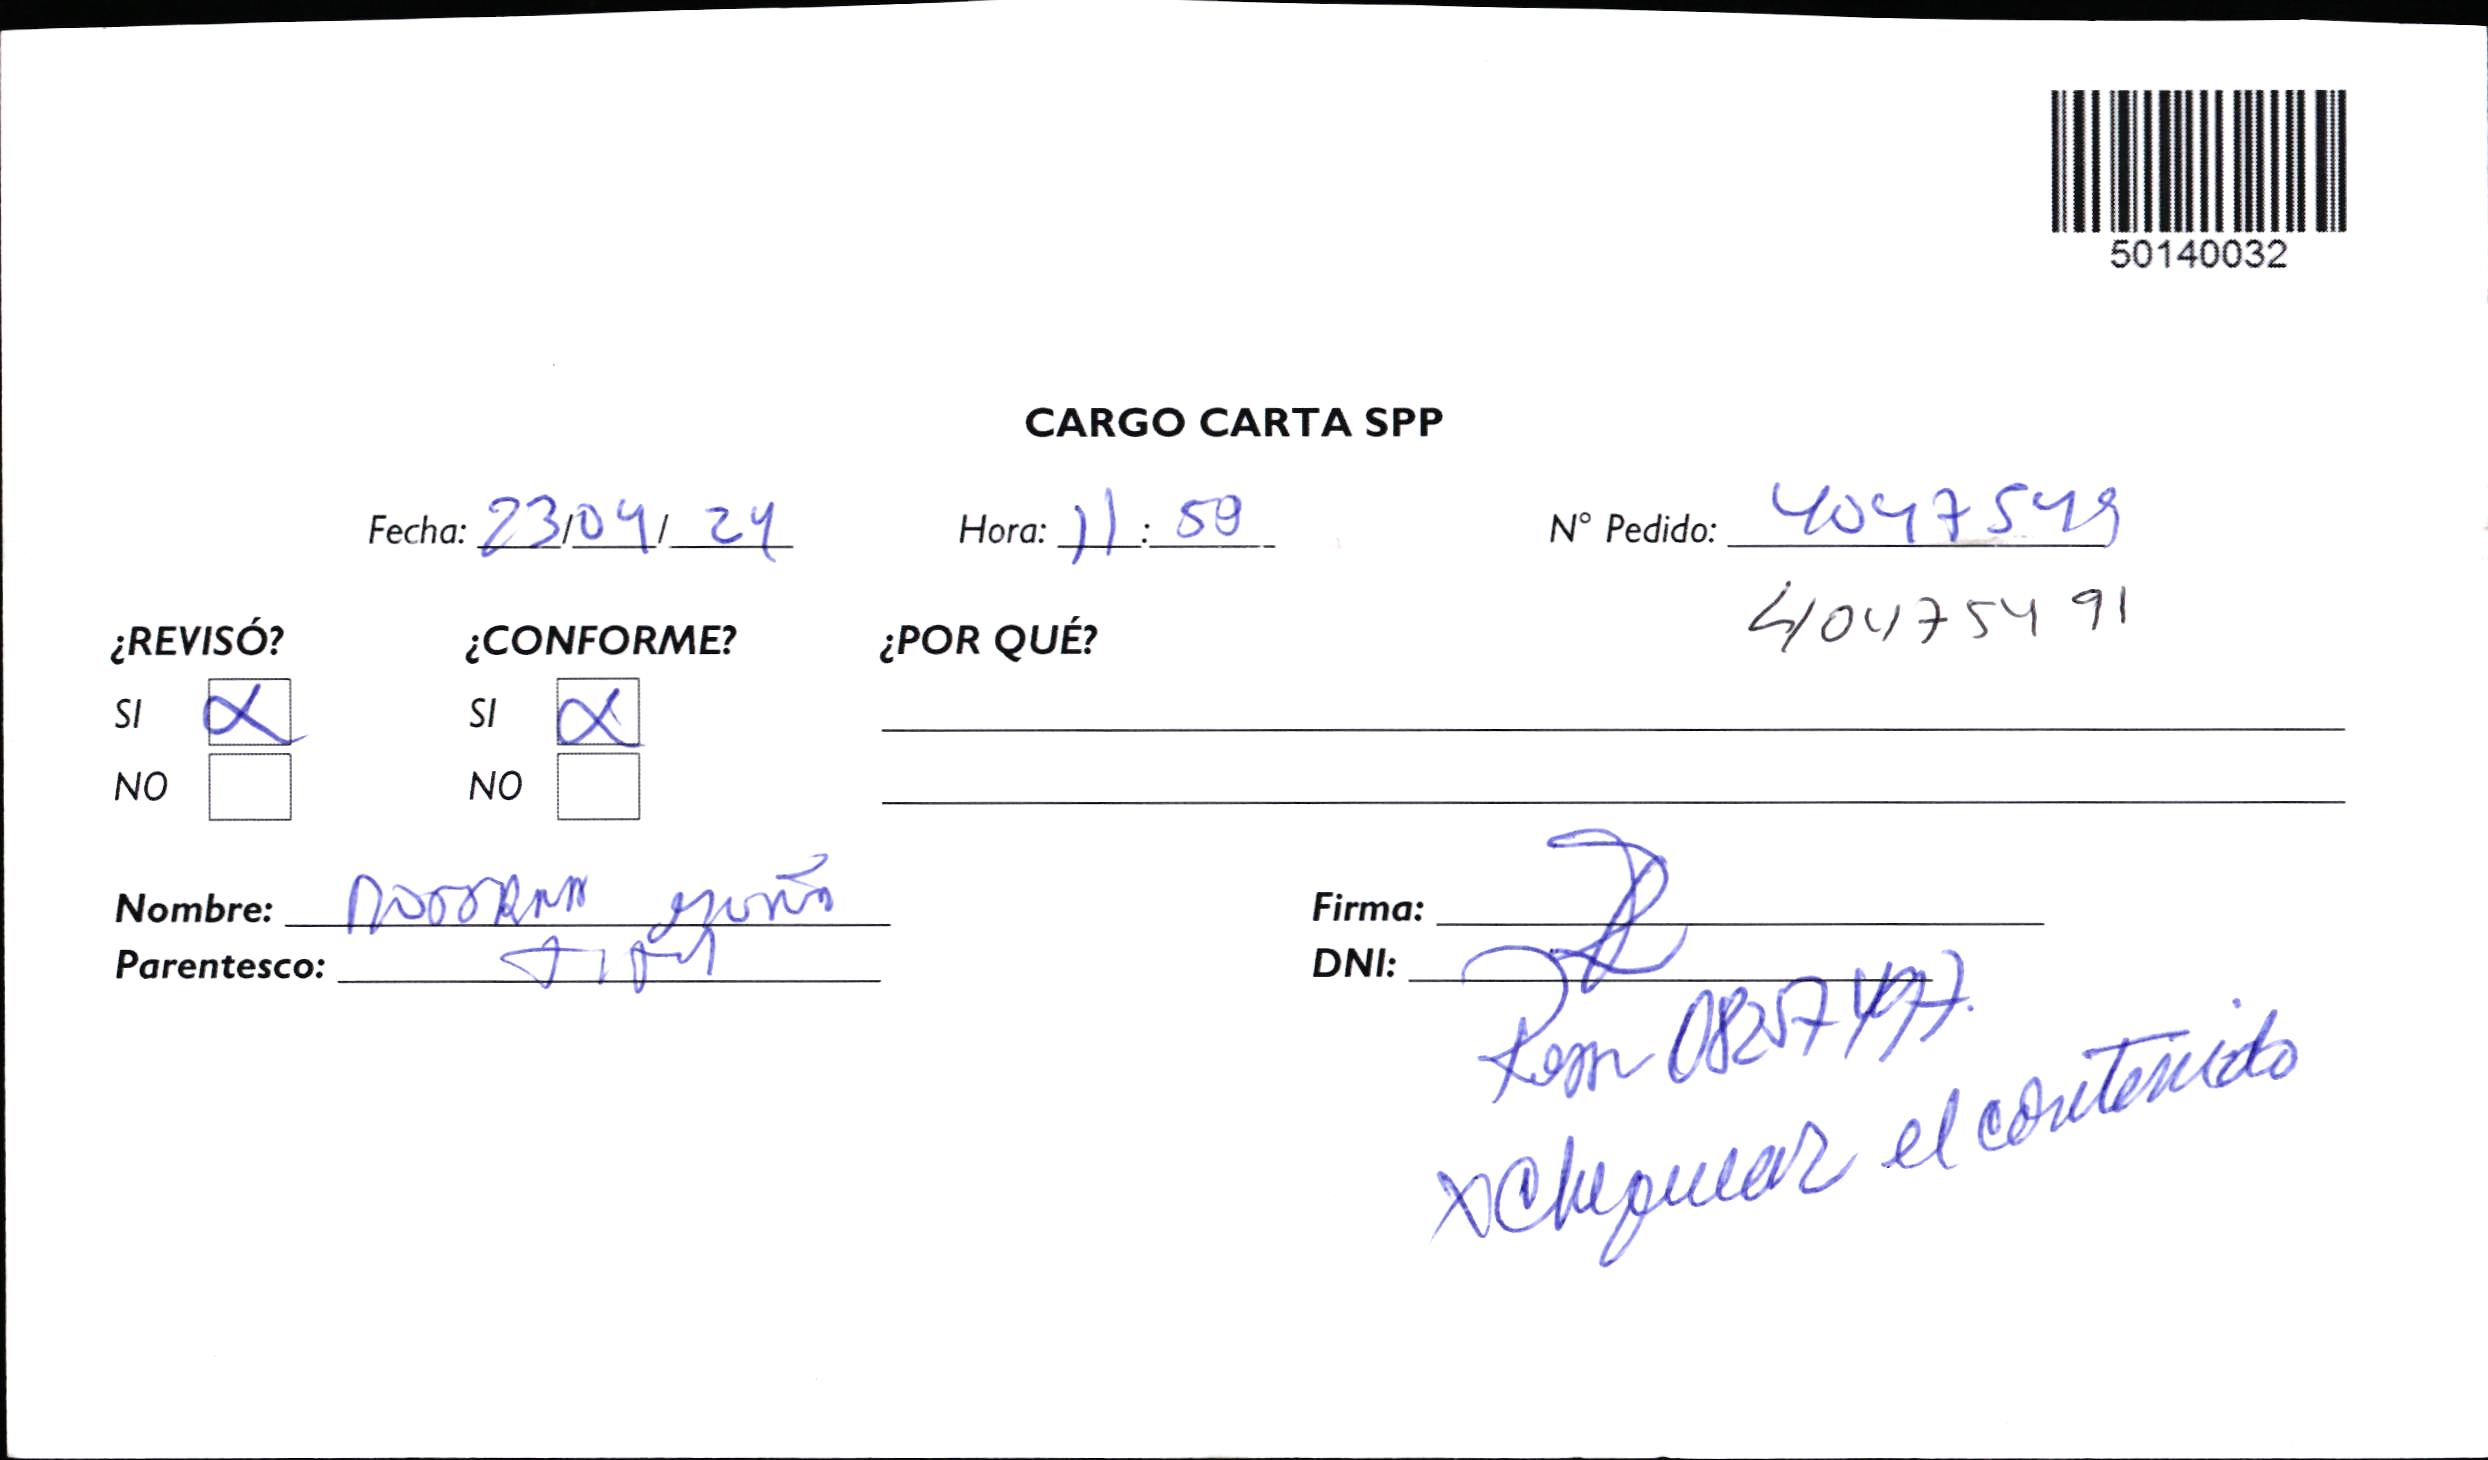 50140032
CARGO CARTA SPP
Fecha: 23/04/24 Hora: 11:59 N° Pedido: 4047549
40475491
¿REVISÓ? ¿CONFORME? ¿POR QUÉ?
SI SI
NO NO
Nombre: Firma:
Parentesco: DNI:
08257477.
x Chequear el contenido